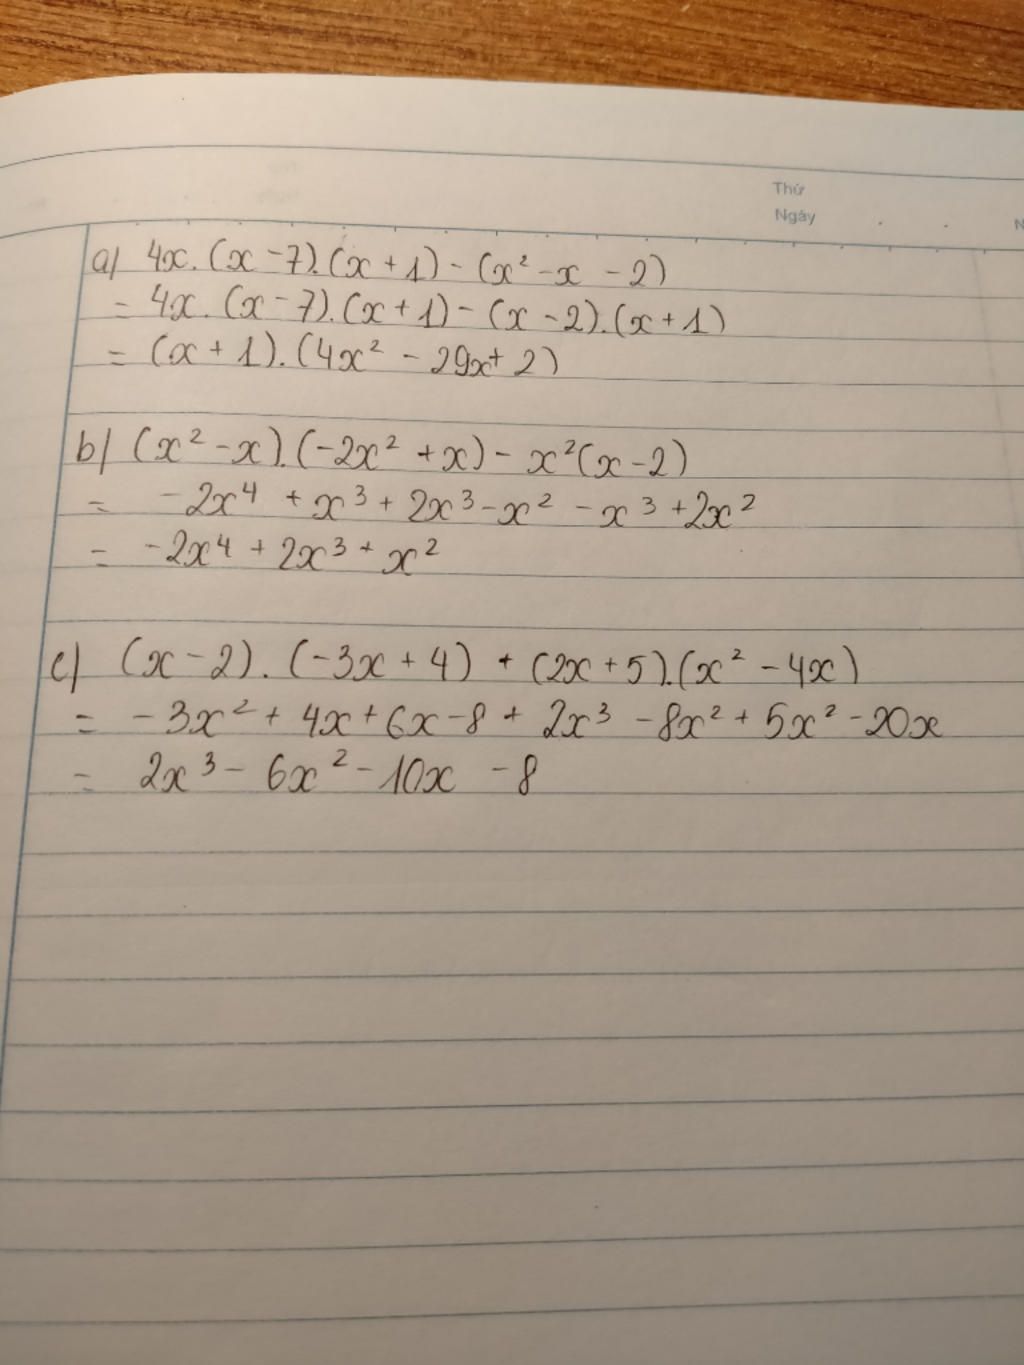 Thứ
Ngày
N
a) 4x.(x-7).(x+1)-(x²-x-2)
= 4x.(x-7).(x+1)-(x-2).(x+1)
= (x+1).(4x²-29x+2)
b) (x²-x).(-2x²+x)-x²(x-2)
= -2x⁴+x³+2x³-x²-x³+2x²
= -2x⁴+2x³+x²
c) (x-2).(-3x+4)+(2x+5).(x²-4x)
= -3x²+4x+6x-8+2x³-8x²+5x²-20x
= 2x³-6x²-10x-8